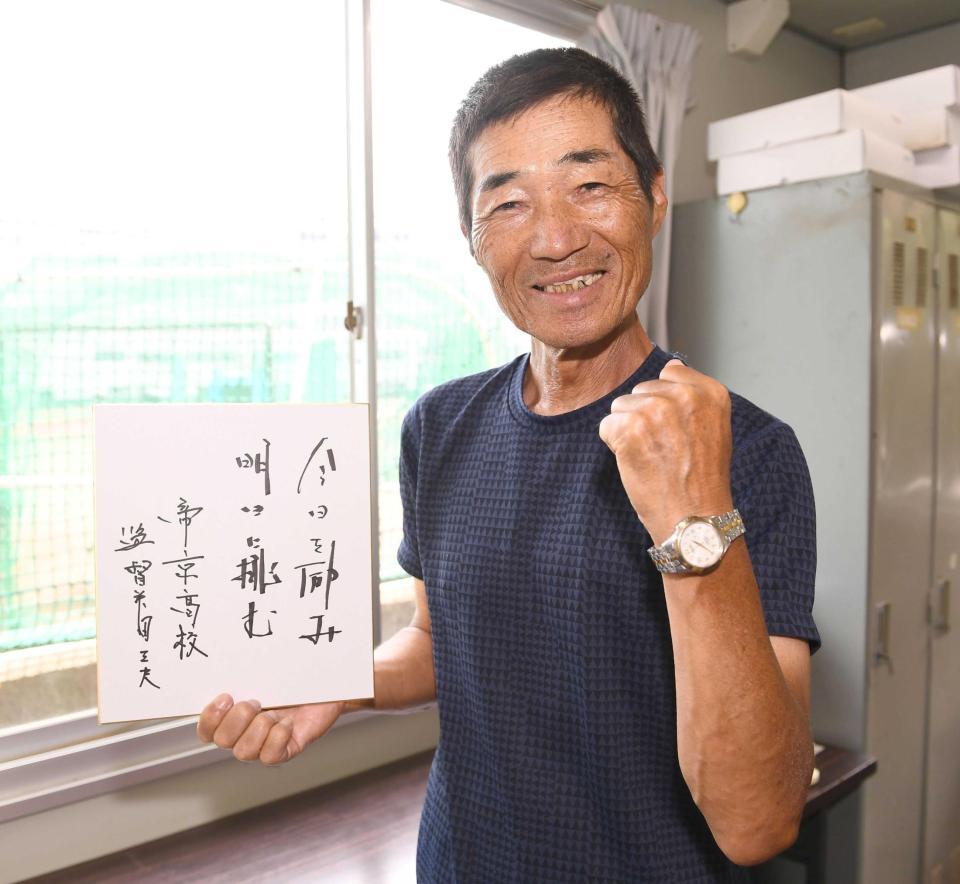 今日を励み
明日に挑む
帝京高校
監督前田三夫